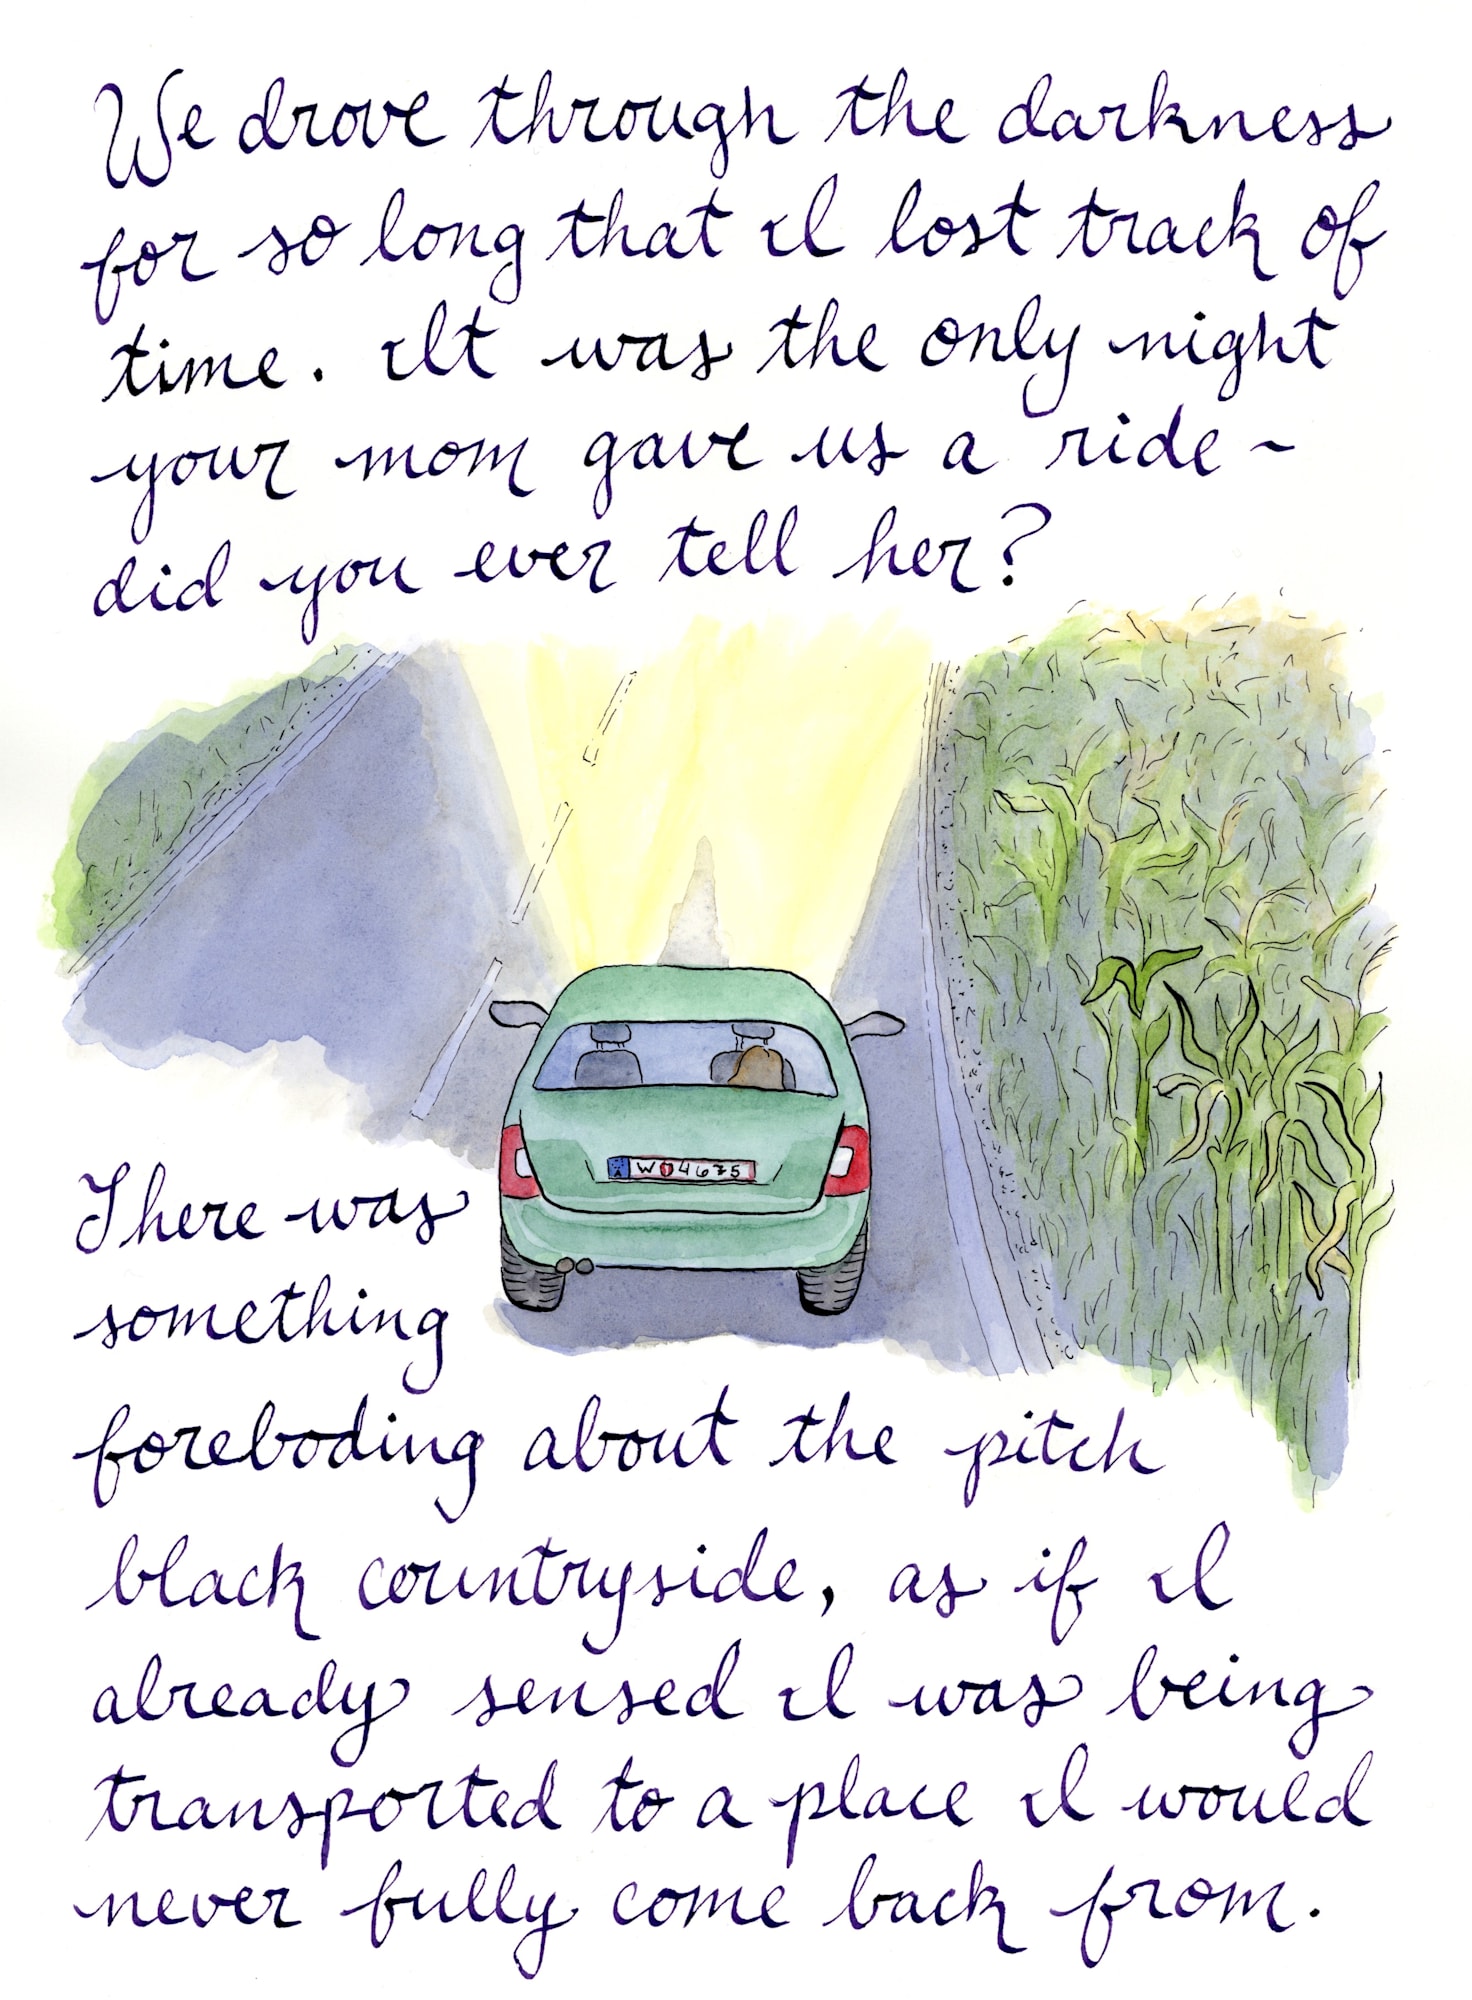 We drove through the darkness
for so long that I lost track of
time. It was the only night
your mom gave us a ride~
did you ever tell her?
A W 4675
There was
something
foreboding about the pitch
black countryside, as if I
already sensed I was being
transported to a place I would
never fully come back from.